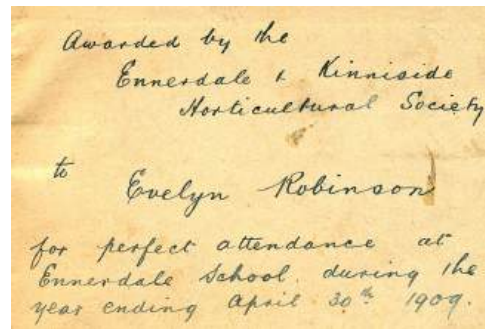 Awarded by the
Ennerdale & Kinniside
Horticultural Society
to Evelyn Robinson
for perfect attendance at
Ennerdale School. during the
year ending April 30th 1909.